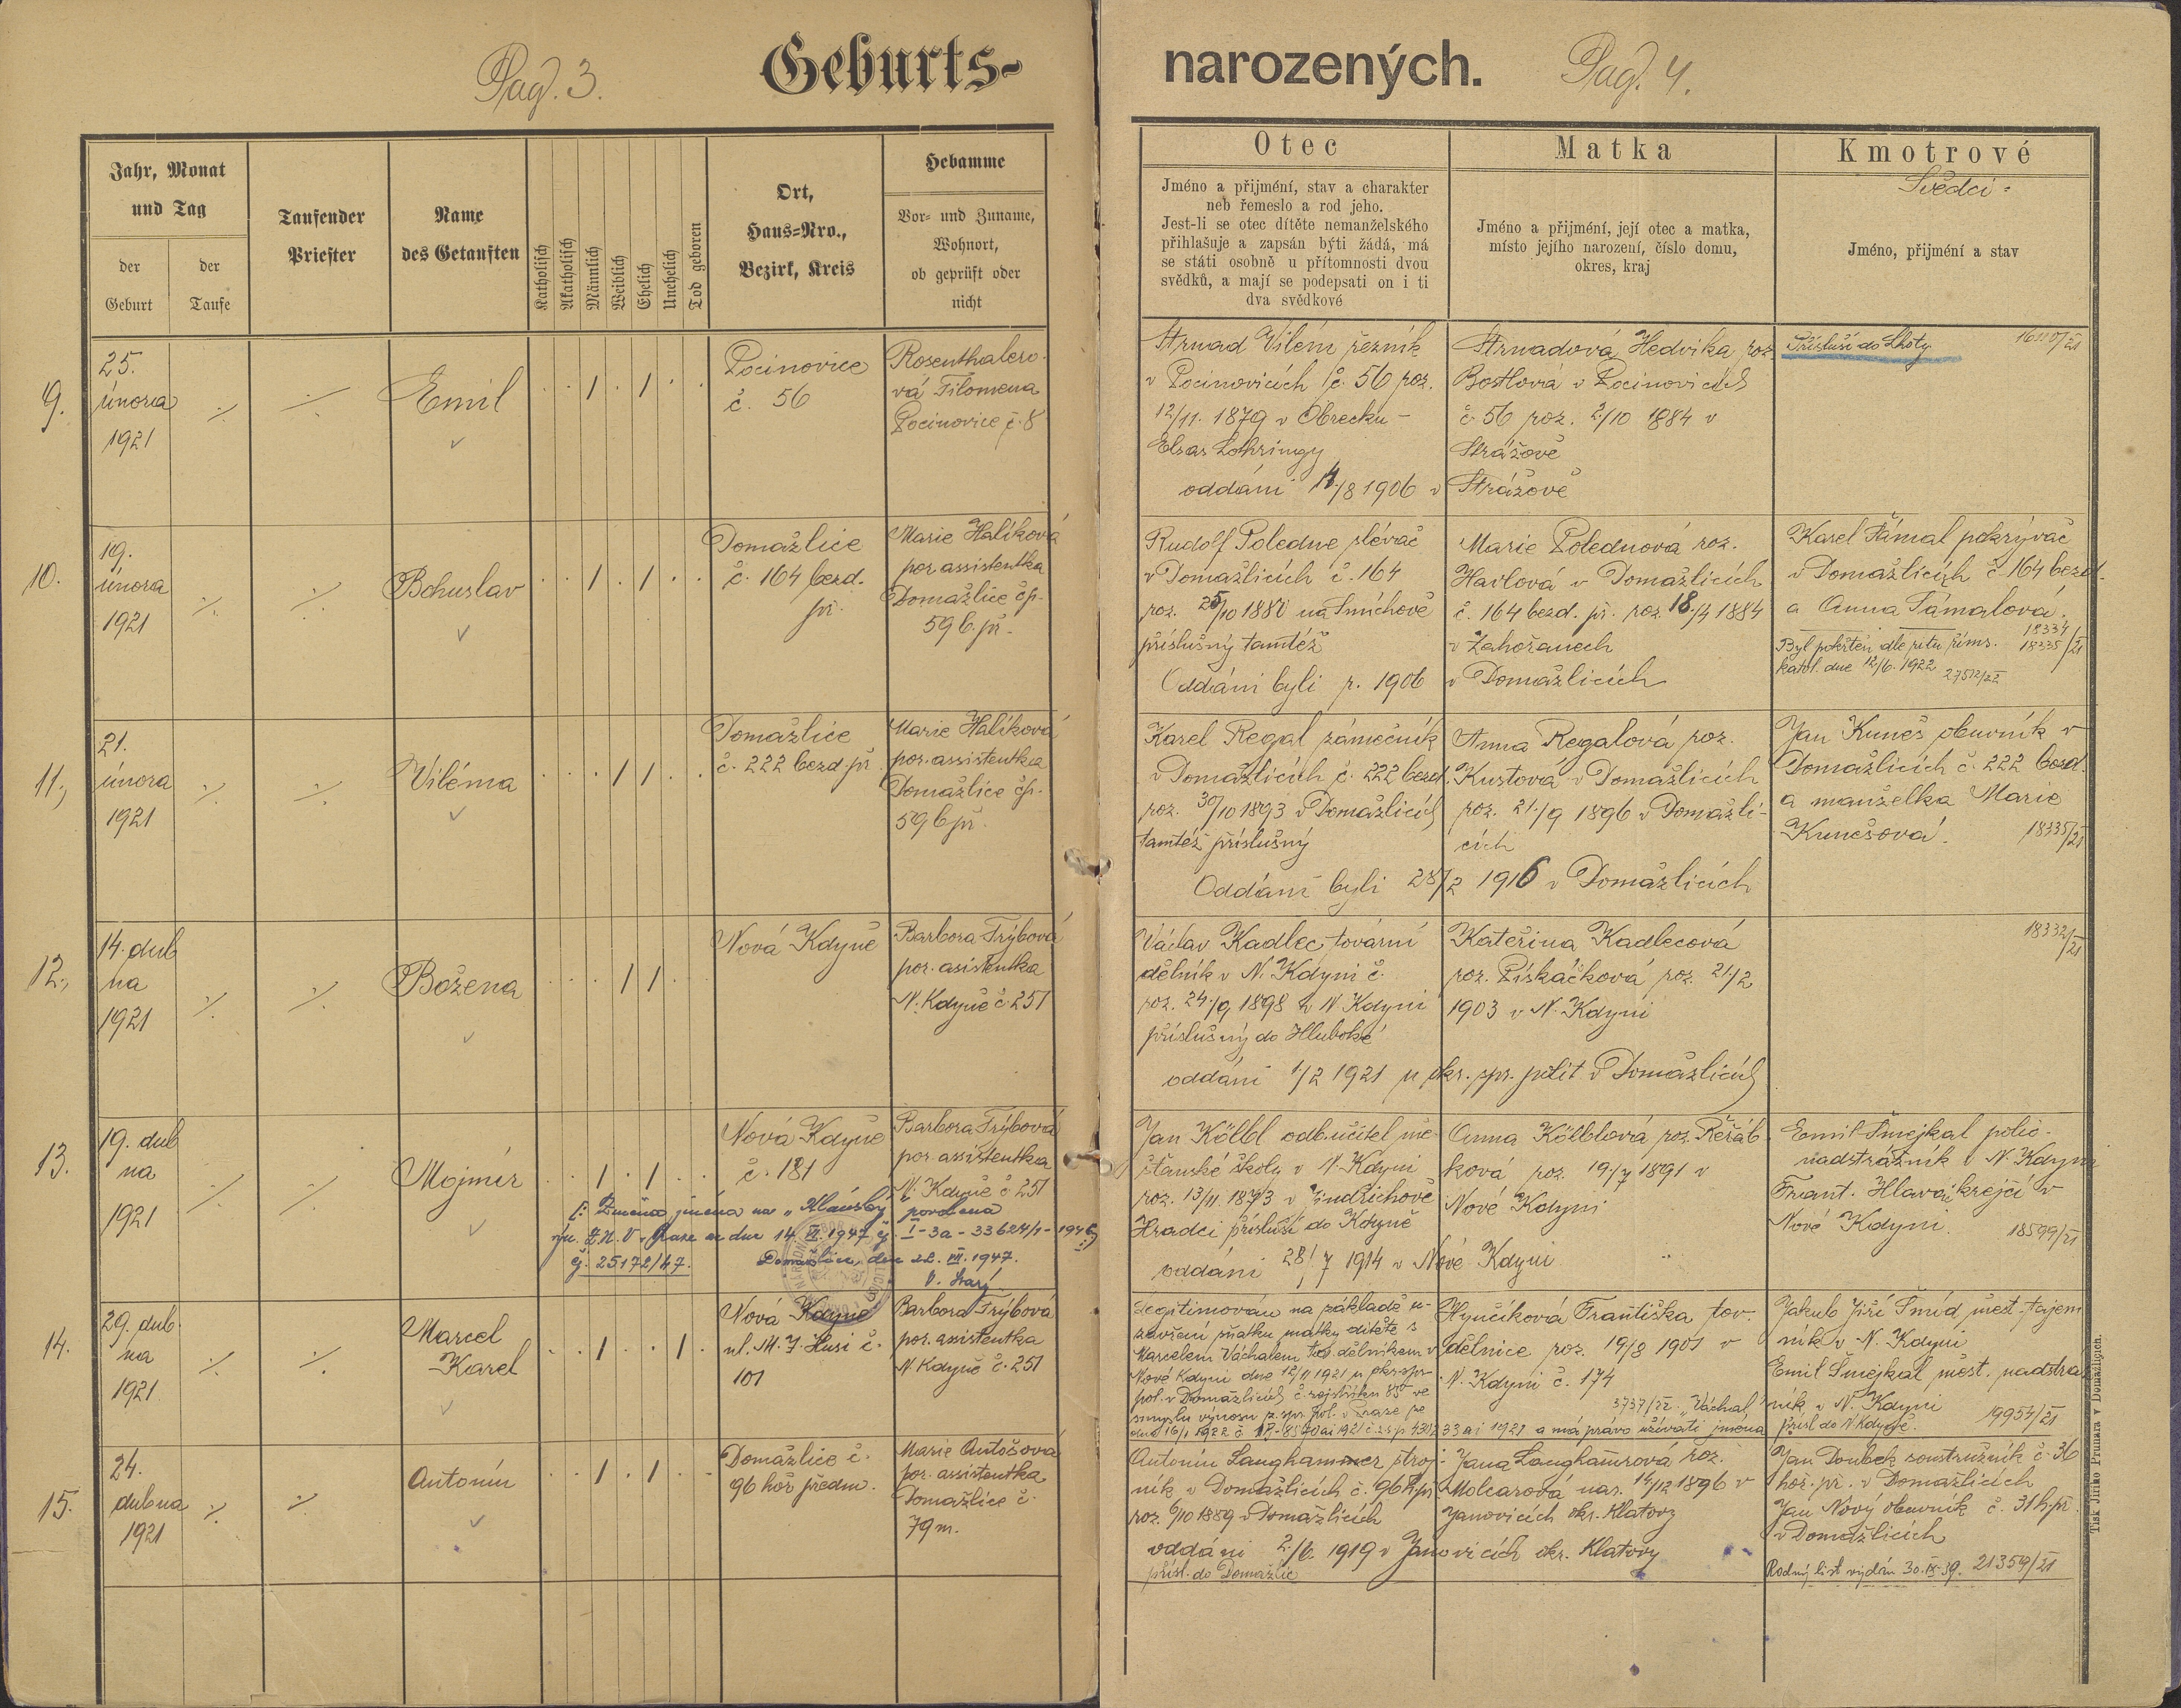 Pag. 3.
Geburts-
Jahr, Monat
und Tag
der
Geburt
der
Taufe
Taufender
Priester
Name
des Getauften
Katholisch
Akatholisch
Männlich
Weiblich
Ehelich
Unehelich
Tod geboren
Ort,
Haus-Nro.,
Bezirk, Kreis
Hebamme
Vor- und Zuname,
Wohnort,
ob geprüft oder
nicht
9.
25.
února
1921
Emil
Pocinovice
č. 56
Rosenthalero-
vá Filomena
Pocinovice č. 8
10.
19.
února
1921
Bohuslav
Domažlice
č. 164 bezd.
př.
Marie Halíková
por. assistentka
Domažlice čp.
59 b. př.
11.
21.
února
1921
Viléma
Domažlice
č. 222 bezd. př.
Marie Halíková
por. assistentka
Domažlice čp.
59 b př.
12.
14. dub
na
1921
Božena
Nová Kdyně
Barbora Frýbová
por. asistentka
N. Kdyně č 251
13.
19. dub
na
1921
Mojmír
Nová Kdyně
č. 181
Barbora Frýbová
por. assistentka
N. Kdyně č 251
Změna jména na „Klánský" povolena
výn. Z.N.V. v Praze ze dne 14. 1947 čj. I-3a-
čj. 25172/47.
Domažlice, dne 22. VII. 1947.
14.
29. dub
na
1921
Marcel
Karel
Nová Kdyně
ul. M. J. Husi č.
101
Barbora Frýbová
por. assistentka
N Kdyně č. 251
15.
24.
dubna
1921
Antonín
Domažlice č.
96 hoř předm.
Marie Antošová
por. assistentka
Domažlice č.
79 m.
narozených.
Pag. 4.
Otec
Jméno a přijmení, stav a charakter
neb řemeslo a rod jeho.
Jest-li se otec dítěte nemanželského
přihlašuje a zapsán býti žádá, má
se státi osobně u přítomnosti dvou
svědků, a mají se podepsati on i ti
dva svědkové
Matka
Jméno a přijmení, její otec a matka,
místo jejího narození, číslo domu,
okres, kraj
Kmotrové
Svědci
Jméno, přijmení a stav
Strnad Vilém řezník
v Pocinovicích č. 56 roz.
12/11. 1879 v Obrecku -
Elsas Lothringy
oddáni 14/8 1906 v
Strnadová Hedvika roz.
Bostlová v Pocinovicích
č 56 roz. 2/10 1884 v
Strážově
Strážově
Přísluší do Lhoty
Rudolf Poledne slévač
v Domažlicích č. 164
roz. 25/10 1880 na Smíchově
příslušný tamtéž
Oddáni byli r. 1906
Marie Polednová roz.
Havlová v Domažlicích
č. 164 bezd. př. roz. 18/4 1884
v Zahořanech
v Domažlicích
Karel Támal pokrývač
v Domažlicích č. 164 bezd.
a Anna Támalová.
18334
18335/21
Byl pokřtěn dle ritu říms.
katol. dne 12/6. 1922
Karel Regal zámečník
v Domažlicích č. 222 bezd.
roz. 30/10 1893 v Domažlicích
tamtéž příslušný
Oddáni byli 28/2 1916 v Domažlicích
Anna Regalová roz.
Kustová v Domažlicích
roz. 21./9 1896 v Domažli-
cích
Jan Kuneš obuvník v
Domažlicích č. 222 bezd.
a manželka Marie
Kunešová.
18335/21
Václav Kadlec tovární
dělník v N. Kdyni č.
roz. 24./9 1898 v N. Kdyni
příslušný do Hluboké
oddáni 1/2 1921 u okr. spr. polit v Domažlicích
Kateřina Kadlecová
roz. Piskáčková roz. 21/2
1903 v N. Kdyni
18332/21
Jan Kölbl odb. učitel mě-
šťanské školy v N. Kdyni
roz. 13/11. 1893 v Jindřichově
Hradci přísluší do Kdyně
oddáni 28/7 1914 v Nové Kdyni
Anna Kölblová roz. Řeřáb-
ková roz. 19/7 1891 v
Nové Kdyni
Emil Šmejkal polic.
nadstrážník v N. Kdyni
Frant. Hlaváč krejčí v
Nové Kdyni.
18599/21
Legitimován na základě u-
zavření sňatku matky dítěte s
Marcelem Váchalem tov. dělníkem v
Nové Kdyni dne 12/11 1921 u okr. spr.
pol. v Domažlicích č. rejstříku 85 ve
smyslu výnosu z. spr. pol. v Praze ze
dne 16/1 1922 č. a má právo užívati jména
„Váchal"
3737/22
Hynčíková Františka tov.
dělnice roz. 19/8 1901 v
N. Kdyni č. 174
Jakub Jiří Šmíd měst. tajem
ník v N. Kdyni
Emil Šmejkal měst. nadstráž
ník v N. Kdyni
přísl. do N Kdyně.
19954/21
Antonín Langhammer stroj-
ník v Domažlicích č. 96 h. př.
roz. 6/10 1889 v Domažlicích
oddáni 2./6. 1919 v Janovicích okr. Klatovy
přísl. do Domažlic
Jana Langhamrová roz.
Molcarová nar. 14/12 1896 v
Janovicích okr. Klatovy
Jan Doubek soustružník č. 36
hoř. př. v Domažlicích
Jan Nový obuvník č. 31 h. př.
v Domažlicích
Rodný list vydán 30. IX. 39. 21359/21
Tisk Jiřího Prunara v Domažlicích.